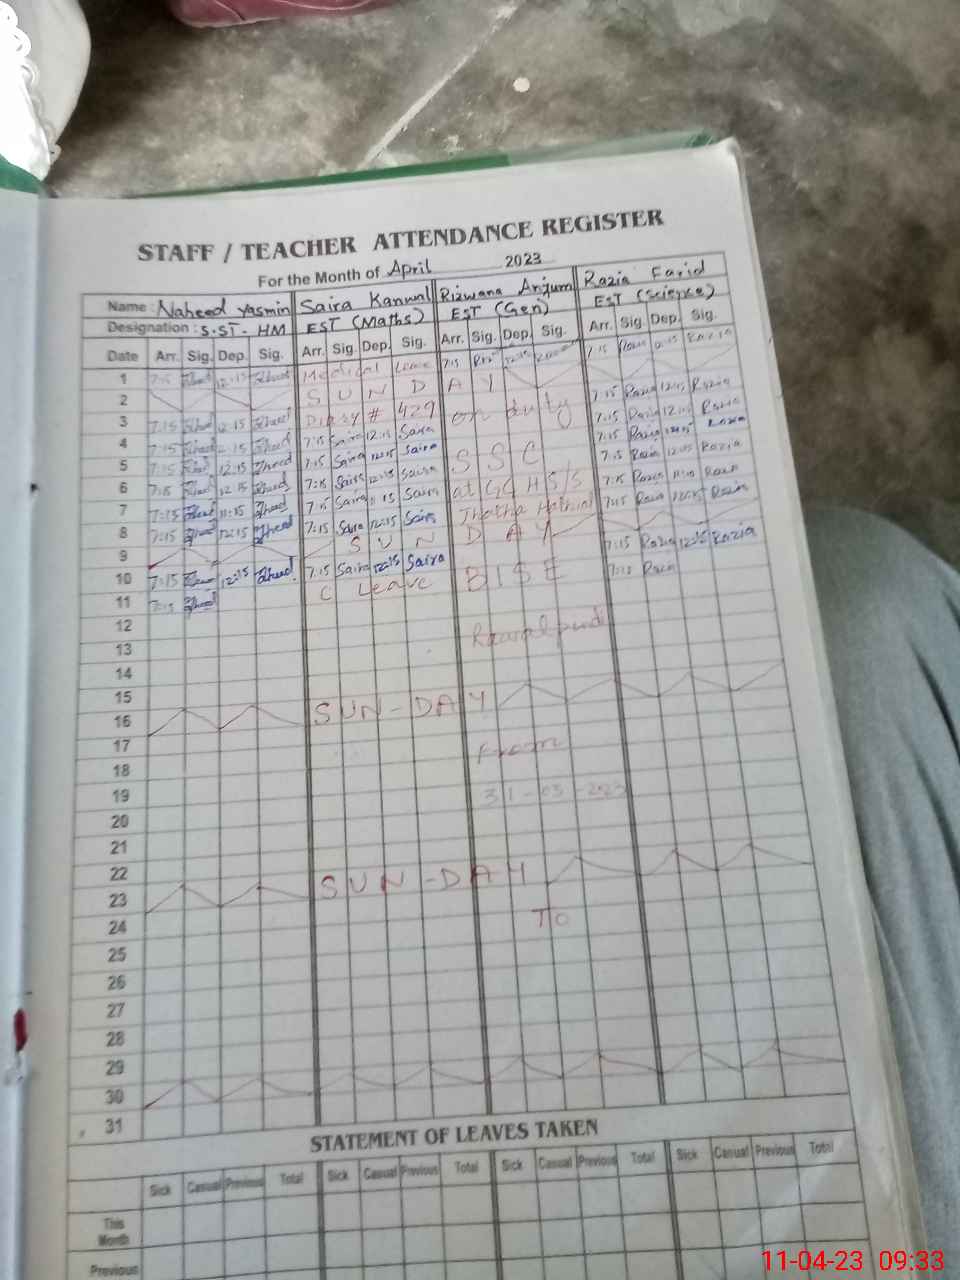 STAFF / TEACHER ATTENDANCE REGISTER
For the Month of April 2023
Name: Naheed Yasmin Saira Kanwal Rizwana Anjum Razia Farid
Designation: S.ST-HM EST (Maths) EST (Gen) EST (Science)
Date Arr. Sig. Dep. Sig. Arr. Sig. Dep. Sig. Arr. Sig. Dep. Sig. Arr. Sig. Dep. Sig.
1 7:15 12:15 Medical Leave 7:15 12:15 7:15 12:15 Razia
2 S U N D A Y
3 7:15 12:15 Diary # 429 on duty 7:15 Razia 12:15 Razia
4 7:15 12:15 7:15 Saira 12:15 Saira 7:15 Razia Razia
5 7:15 12:15 7:15 Saira 12:15 Saira S S C 7:15 Razia 12:15 Razia
6 7:15 12:15 7:15 Saira 12:15 Saira at GG H S/S 7:15 Razia 12:15 Razia
7 7:15 11:15 7:15 Saira 11:15 Saira Jhatha Hathial 7:15 Razia Razia
8 7:15 12:15 7:15 Saira 12:15 Saira 7:15 Razia 12:15 Razia
9 S U N D A Y
10 7:15 12:15 7:15 Saira 12:15 Saira B I S E 7:15 Razia 12:15 Razia
11 7:15 C Leave Razia
12 Rawalpindi
13
14
15
16 SUN-DAY
17 From
18
19 31-03-2023
20
21
22
23 SUN-DAY
24 To
25
26
27
28
29
30
31
STATEMENT OF LEAVES TAKEN
Sick Casual Previous Total Sick Casual Previous Total Sick Casual Previous Total Sick Casual Previous Total
This Month
Previous
11-04-23 09:33